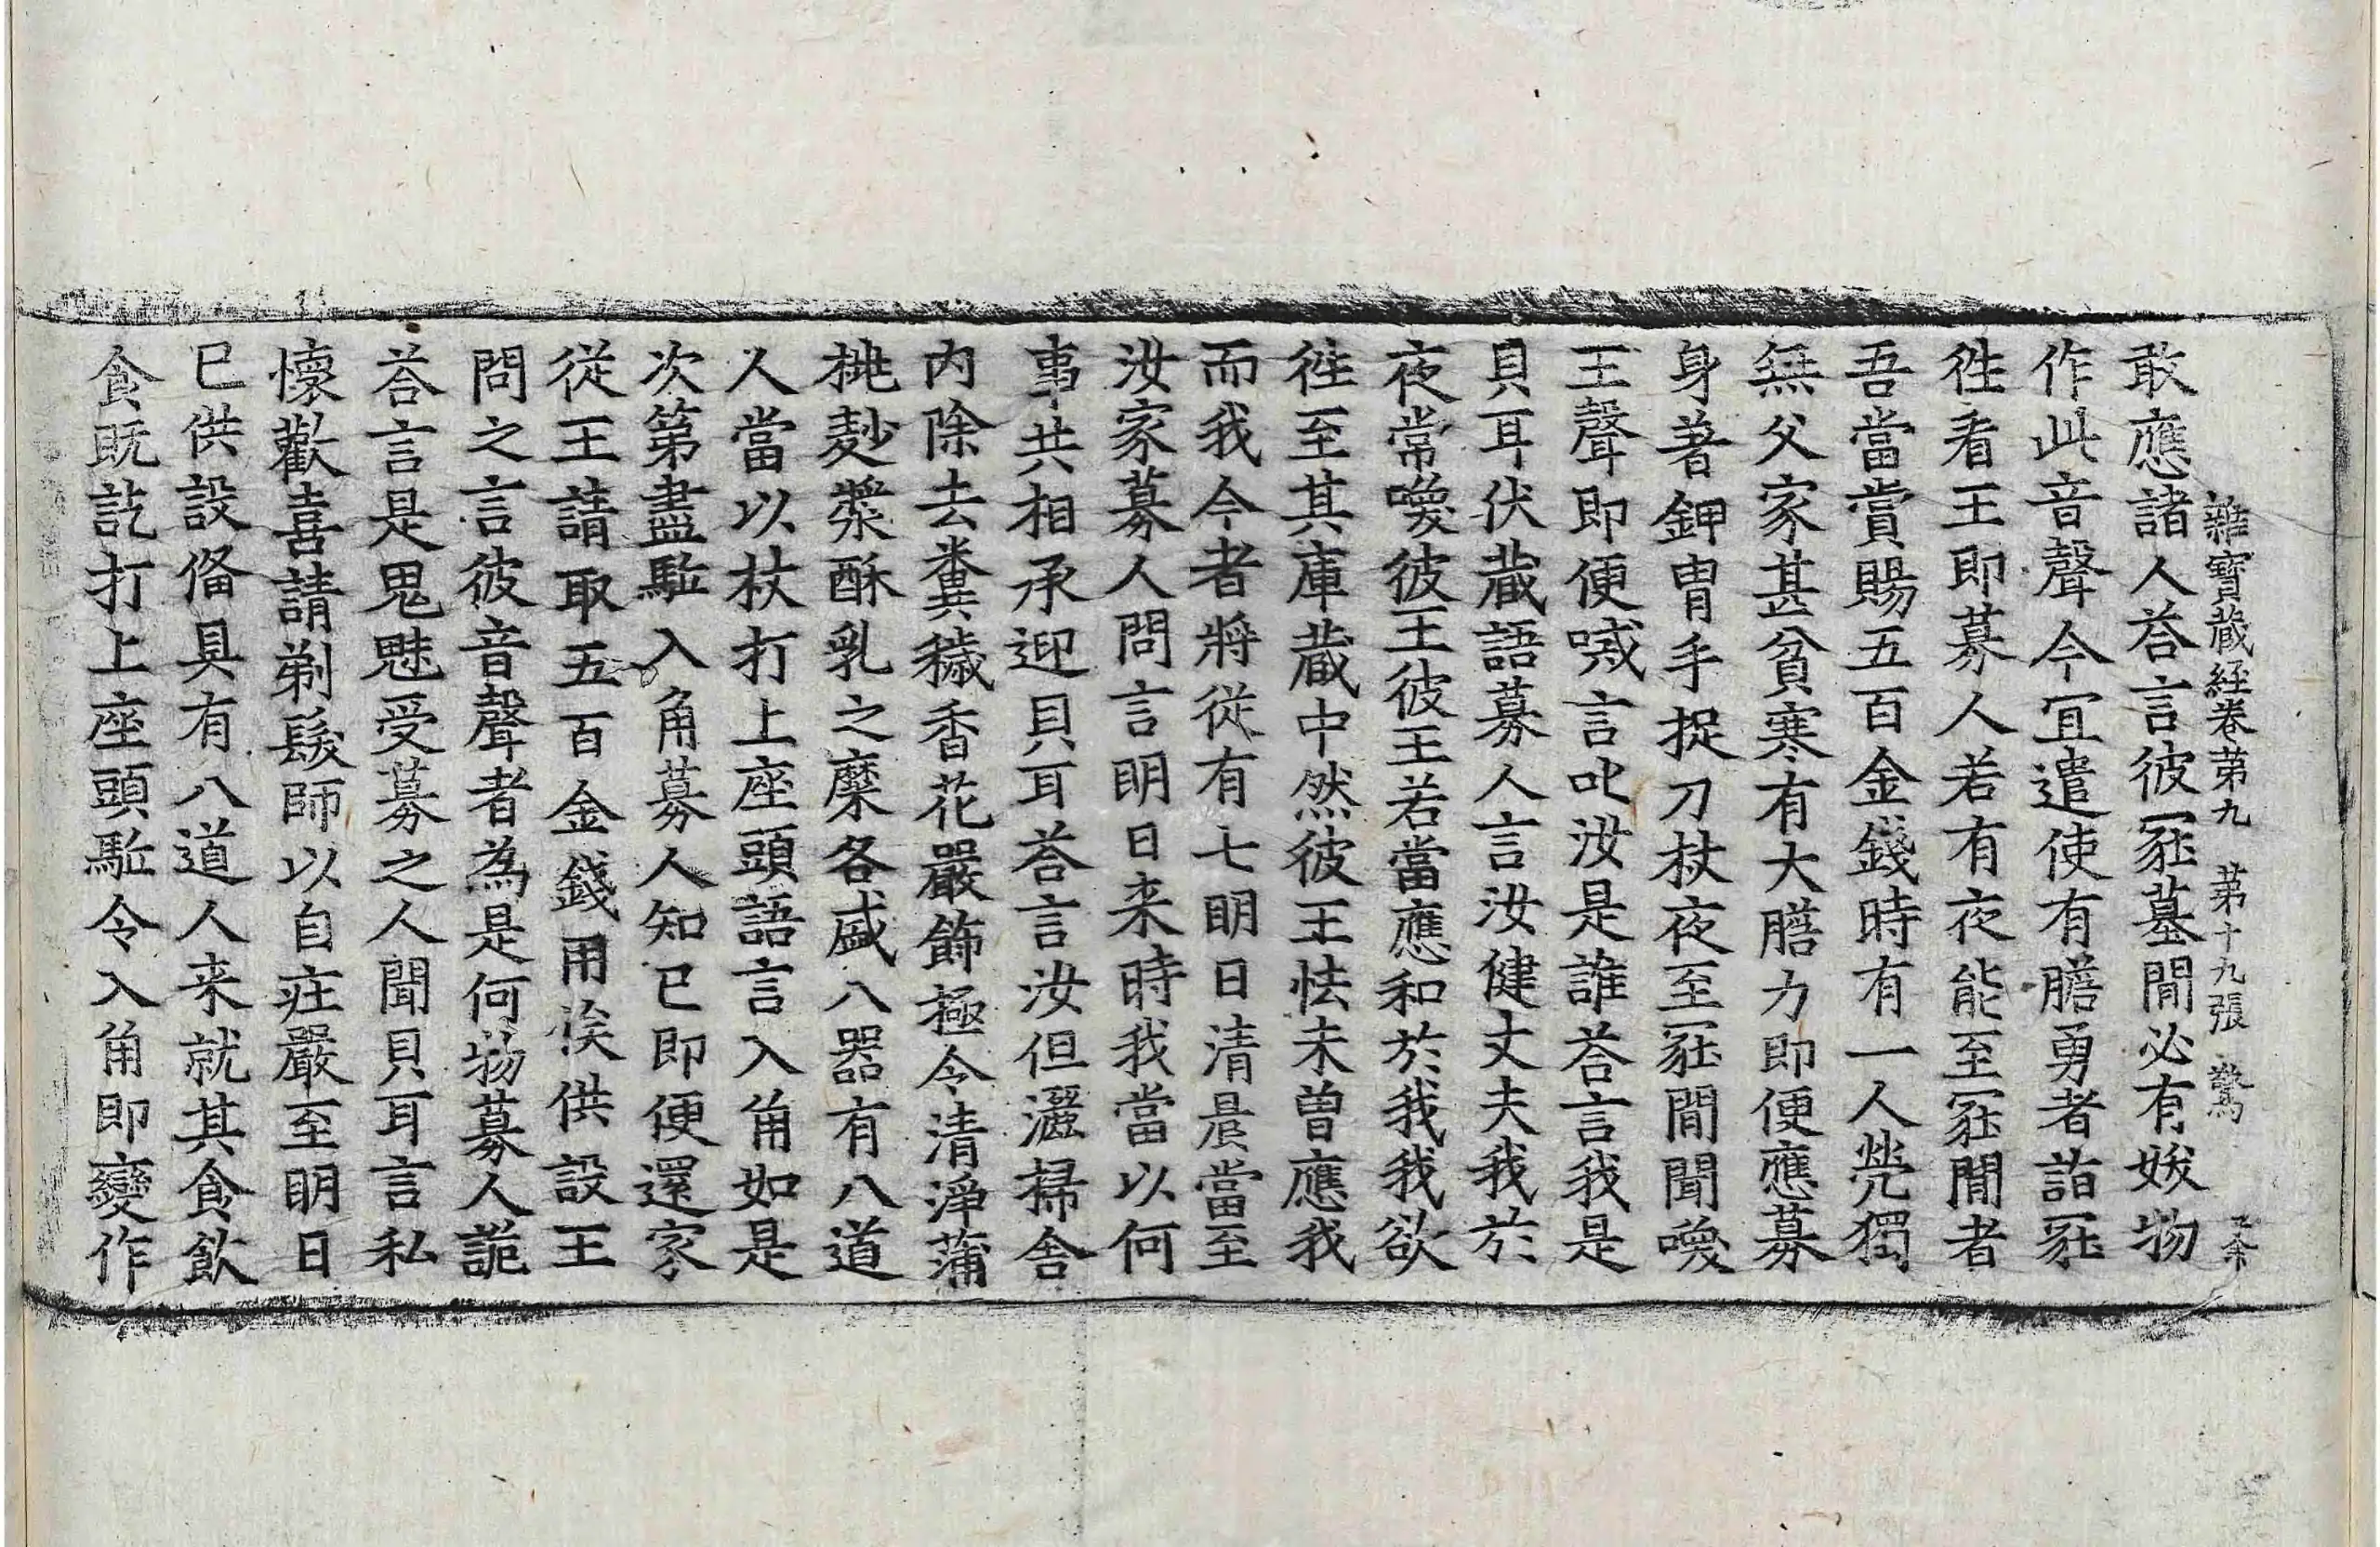 雜寶藏経卷第九 第十九張 驚
敢應諸人荅言彼冢墓閒必有妖物
作此音聲今冝遣使有膽勇者詣冢
徃看王即募人若有夜能至冢閒者
吾當賞賜五百金錢時有一人煢獨
無父家甚貧寒有大膽力即便應募
身著鉀冑手捉刀杖夜至冢閒聞喚
王聲即便喊言叱汝是誰荅言我是
貝耳伏藏語募人言汝健丈夫我於
夜常喚彼王彼王若當應和於我我欲
徃至其庫藏中然彼王怯未曾應我
而我今者將從有七明日清晨當至
汝家募人問言明日来時我當以何
事共相承迎貝耳荅言汝但灑掃舎
内除去糞穢香花嚴飾極令清淨蒲
桃麨漿酥乳之糜各盛八器有八道
人當以杖打上座頭語言入角如是
次第盡駈入角募人知已即便還家
従王請取五百金錢用俟供設王
問之言彼音聲者為是何物募人詭
荅言是鬼魅受募之人聞貝耳言私
懷歡喜請剃髮師以自莊嚴至明日
已供設俻具有八道人来就其食飲
食既訖打上座頭駈令入角即變作